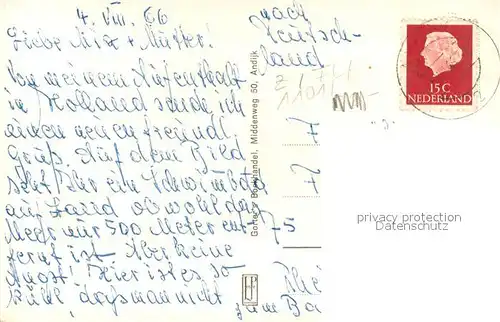 4. VIII. 66
Liebe Nix + Mutter!
Von meinem Aufenthalt
in Holland sende ich
einen neuen freundl.
Gruß. Auf dem Bild
seht Ihr ein Schwimmbad
auf Land obwohl das
Meer nur 500 Meter ent-
fernt ist. Aber keine
Angst! Hier ist es so
kühl, dass man nicht
zum Ba
nach
Deutsch-
land
Gorter's Boekhandel, Middenweg 50, Andijk
15 C
NEDERLAND
privacy protection
Datenschutz